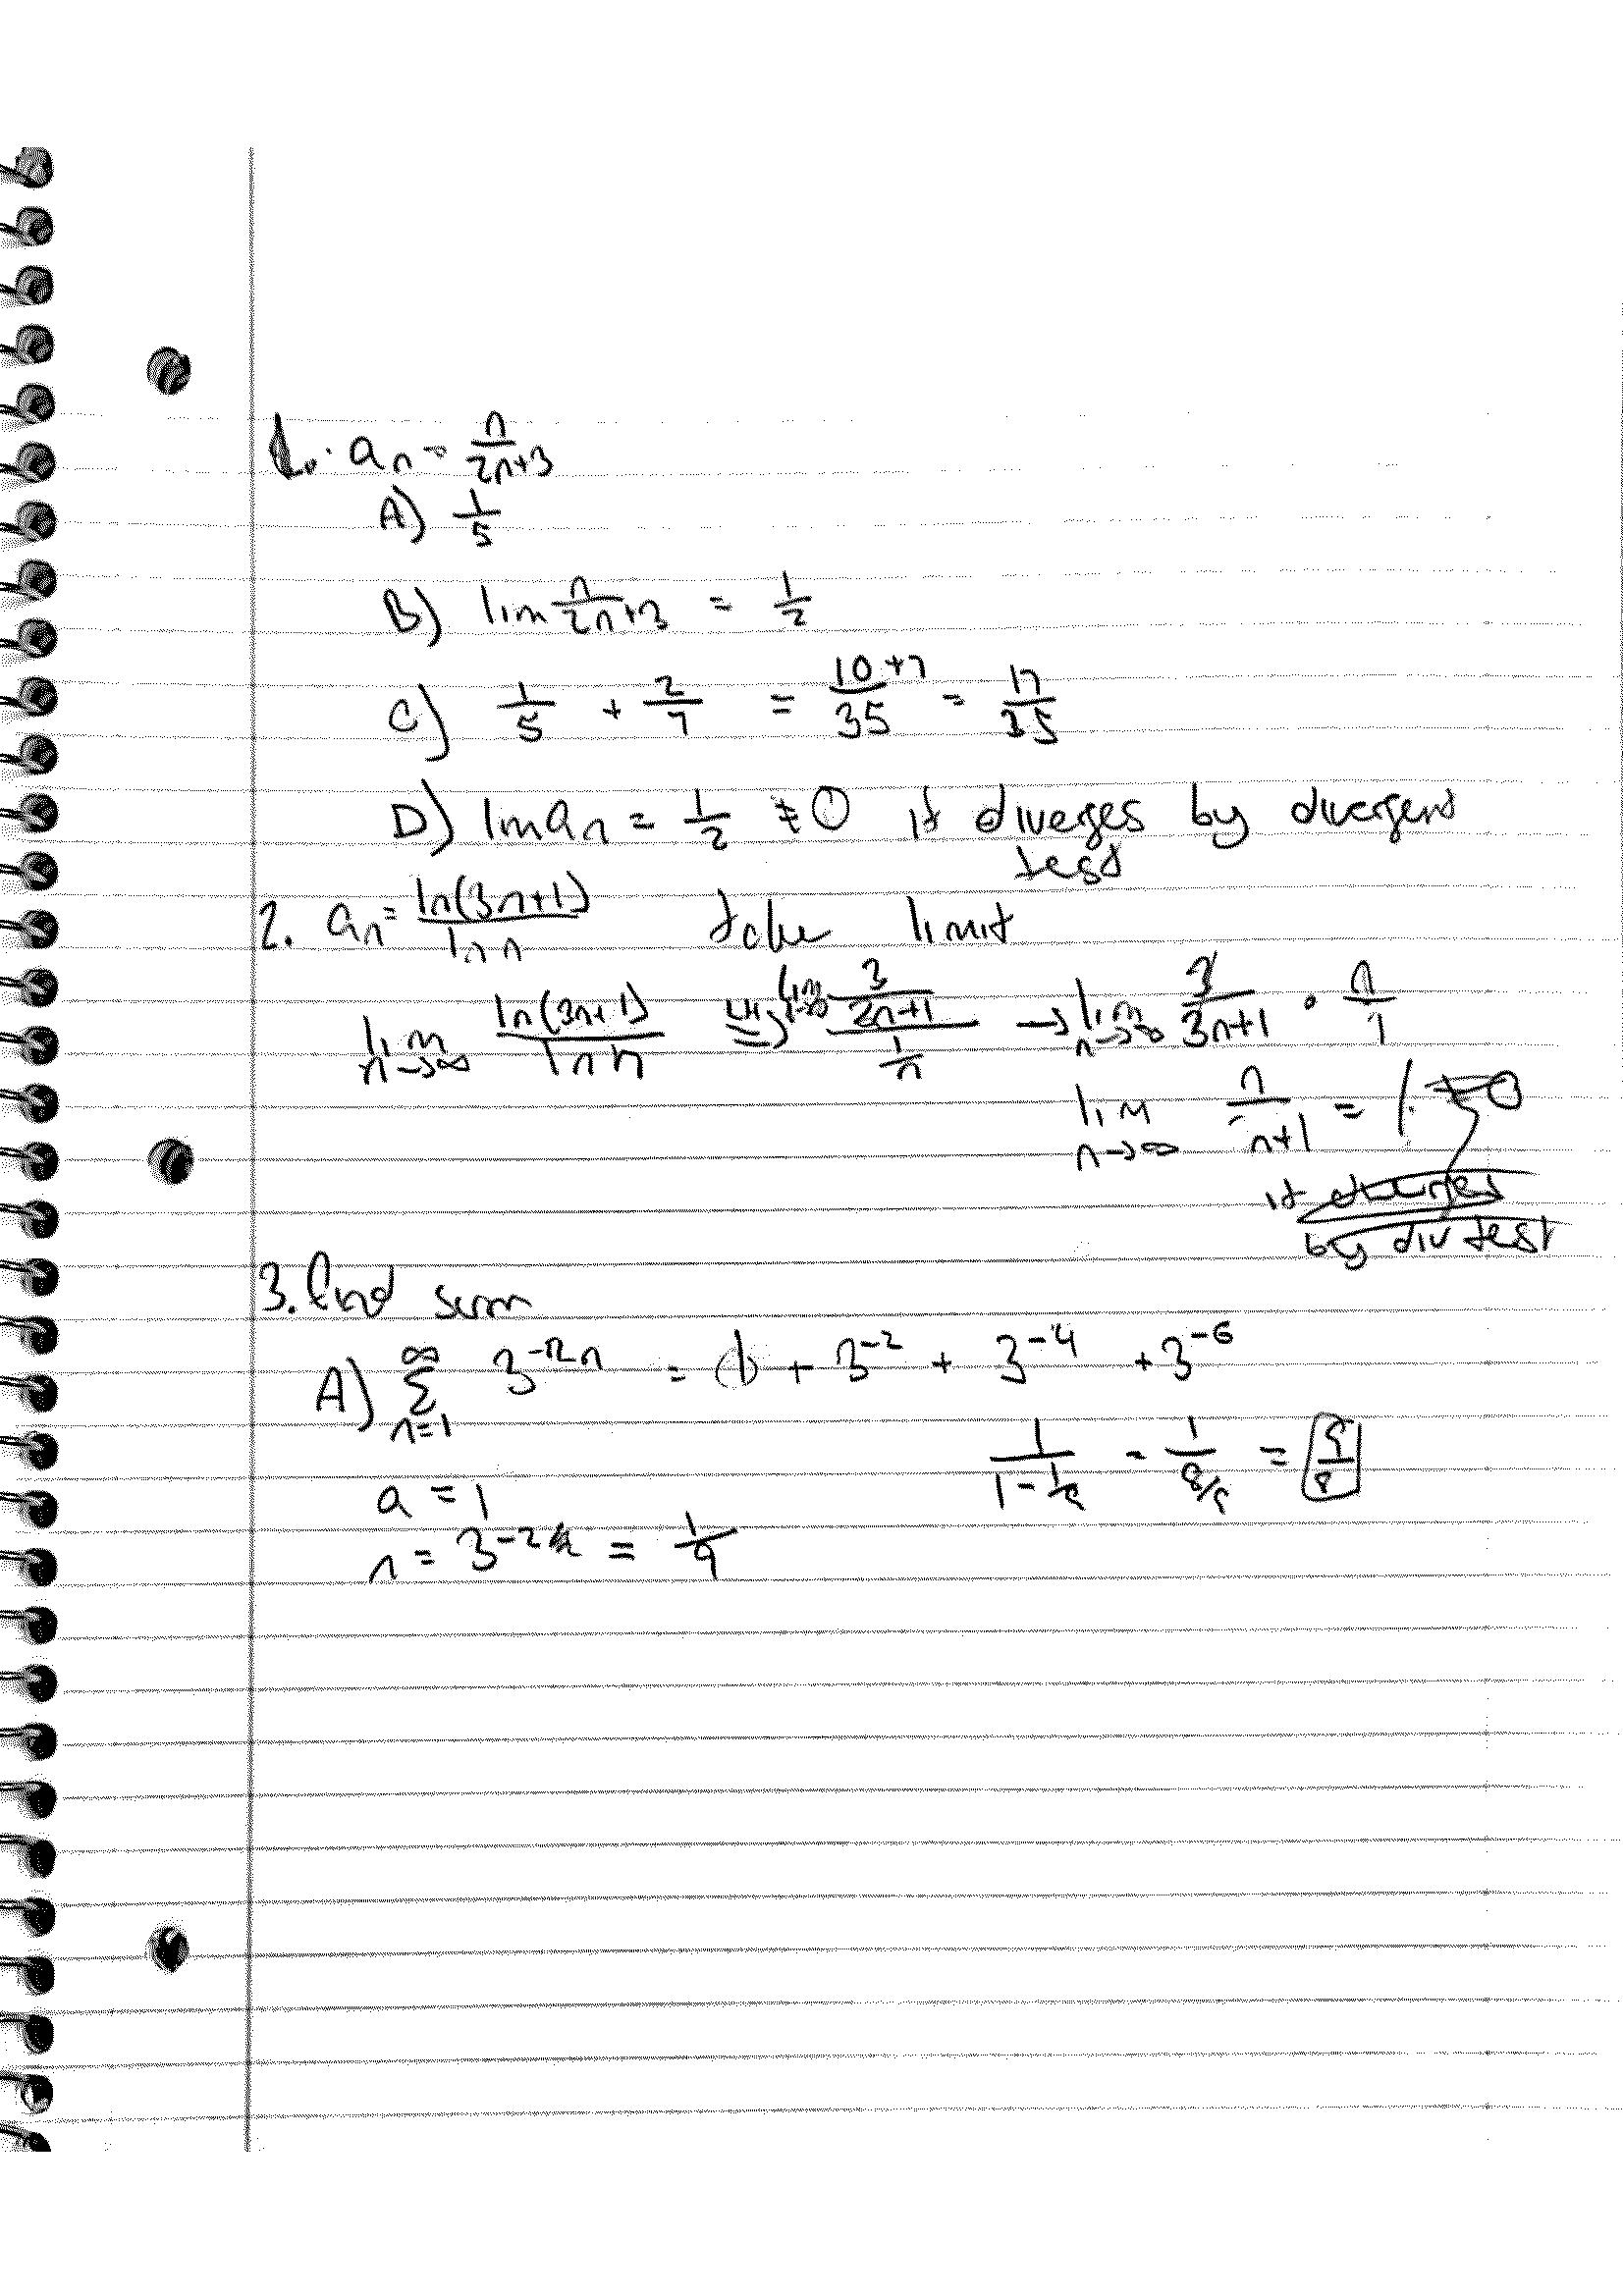 1. aₙ = n/(2n+3)
A) 1/5
B) lim n/(2n+3) = 1/2
C) 1/5 + 2/7 = (10+7)/35 = 17/35
D) lim aₙ = 1/2 ≠ 0 it diverges by divergent
test
2. aₙ = ln(3n+1)/ln n take limit
lim n→∞ ln(3n+1)/ln n =^LH lim n→∞ (3/(2n+1))/(1/n) → lim n→∞ 3/(3n+1) · n/1
lim n→∞ n/(n+1) = 1 ≠ 0
it diverges
by div test
3. find sum
A) ∑ n=1 ∞ 3^(-2n) = 1 + 3^(-2) + 3^(-4) + 3^(-6)
1/(1 - 1/9) = 1/(8/9) = 9/8
a = 1
r = 3^(-2) = 1/9